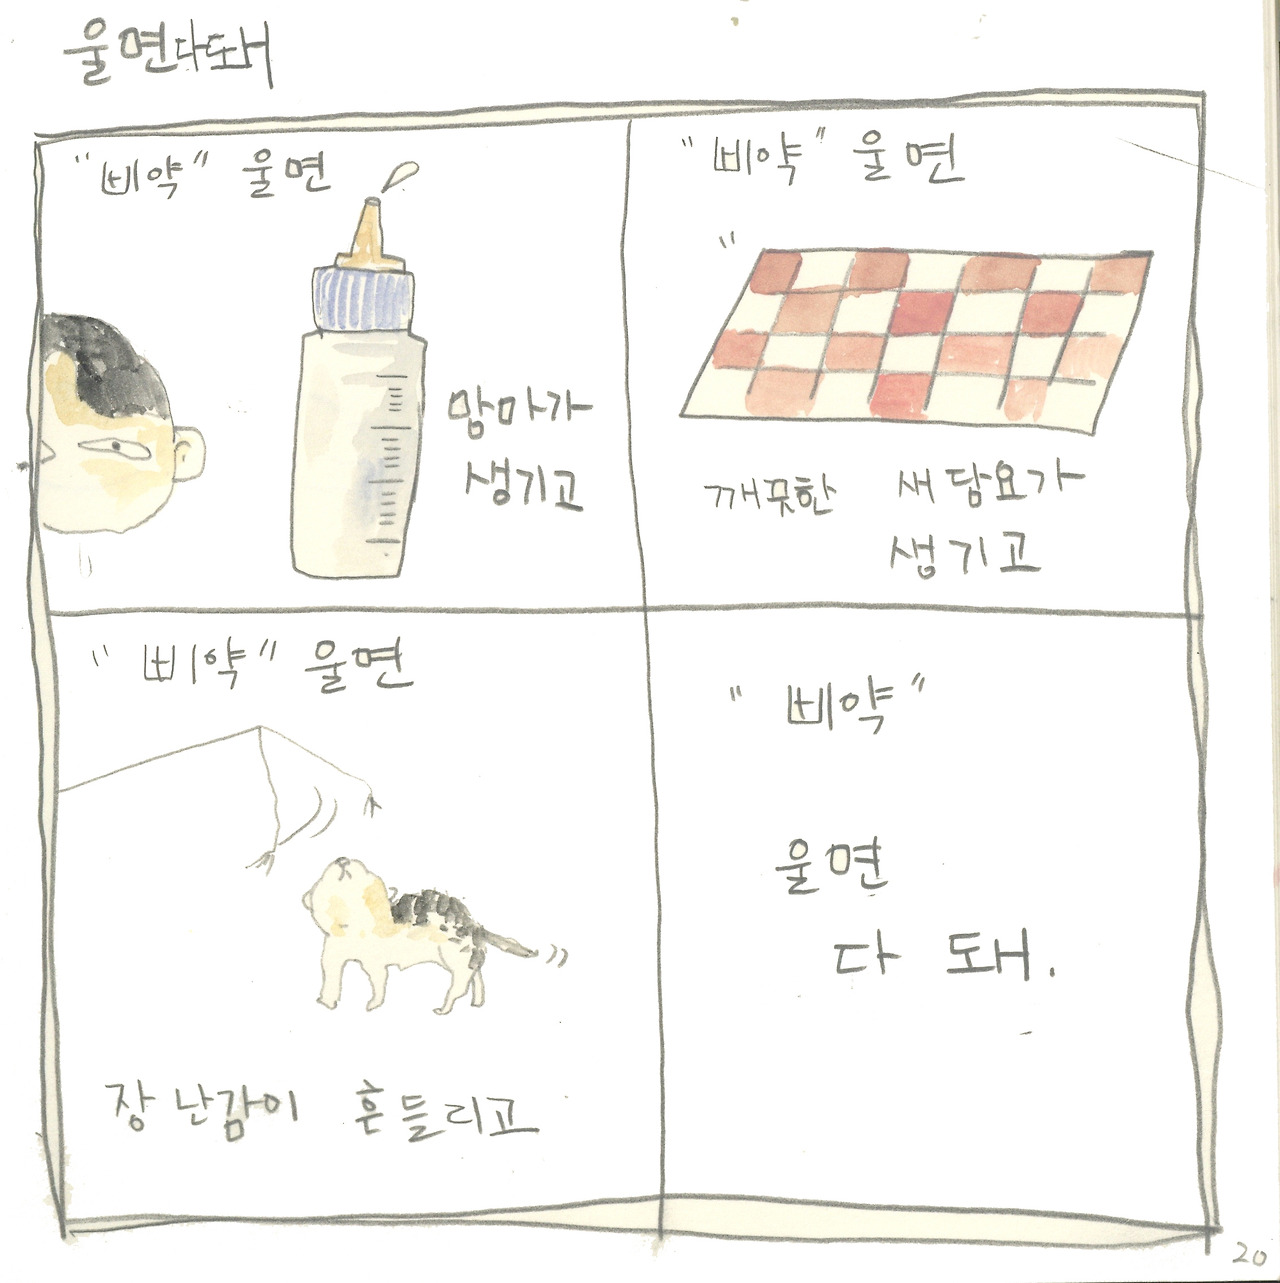 울면다돼
"삐약" 울면
맘마가
생기고
"삐약" 울면
깨끗한 새담요가
생기고
"삐약" 울면
장난감이 흔들리고
"삐약"
울면
다 돼.
20